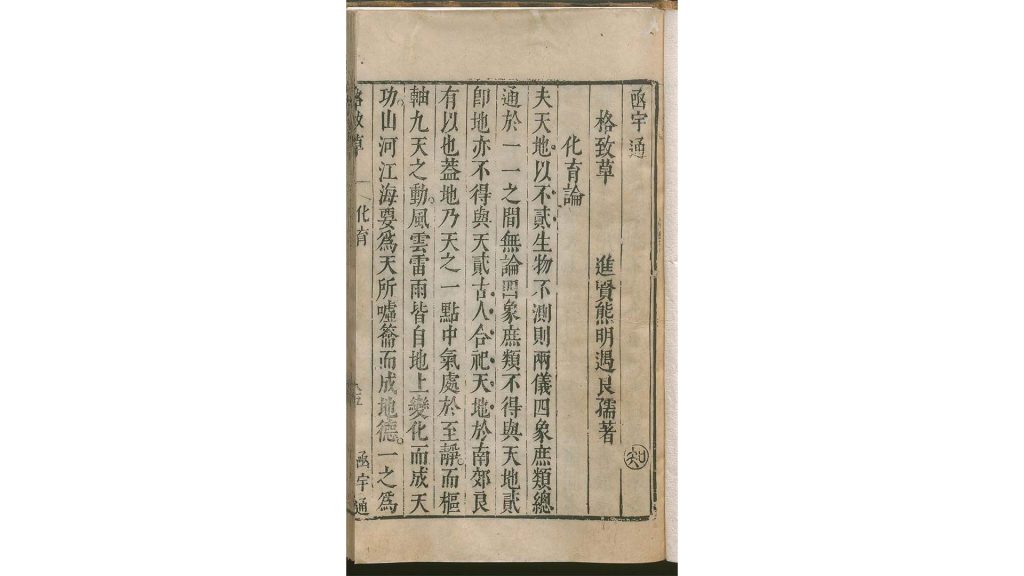 函宇通
格致草　進賢熊明遇良孺著
化育論
夫天地以不貳生物不測則兩儀四象庶類總
通於一一之間無論四象庶類不得與天地貳
卽地亦不得與天貳古人合祀天地於南郊良
有以也蓋地乃天之一點中氣處於至靜而樞
軸九天之動風雲雷雨皆自地上變化而成天
功山河江海要爲天所噓籥而成地德一之爲
格致草　化育　函宇通